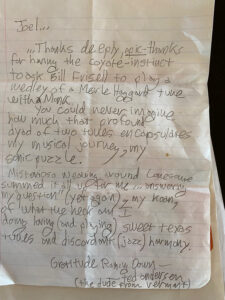 Joel...
...Thanks deeply, epic-thanks
for having the coyote-instinct
to ask Bill Frisell to play a
medley of a Merle Haggard tune
with a Monk.
You could never imagine
how much that profound
dyad of two tunes encapsulates
my musical journey, my
sonic puzzle.
Misterioso weaving around
summed it all up for me... answering
my question (yet again), my
of what the heck am I
doing loving (and playing) sweet texas
tunes and discordant (jazz) harmony.
Gratitude Raining Down —
Ted Anderson
(the dude from Vermont)